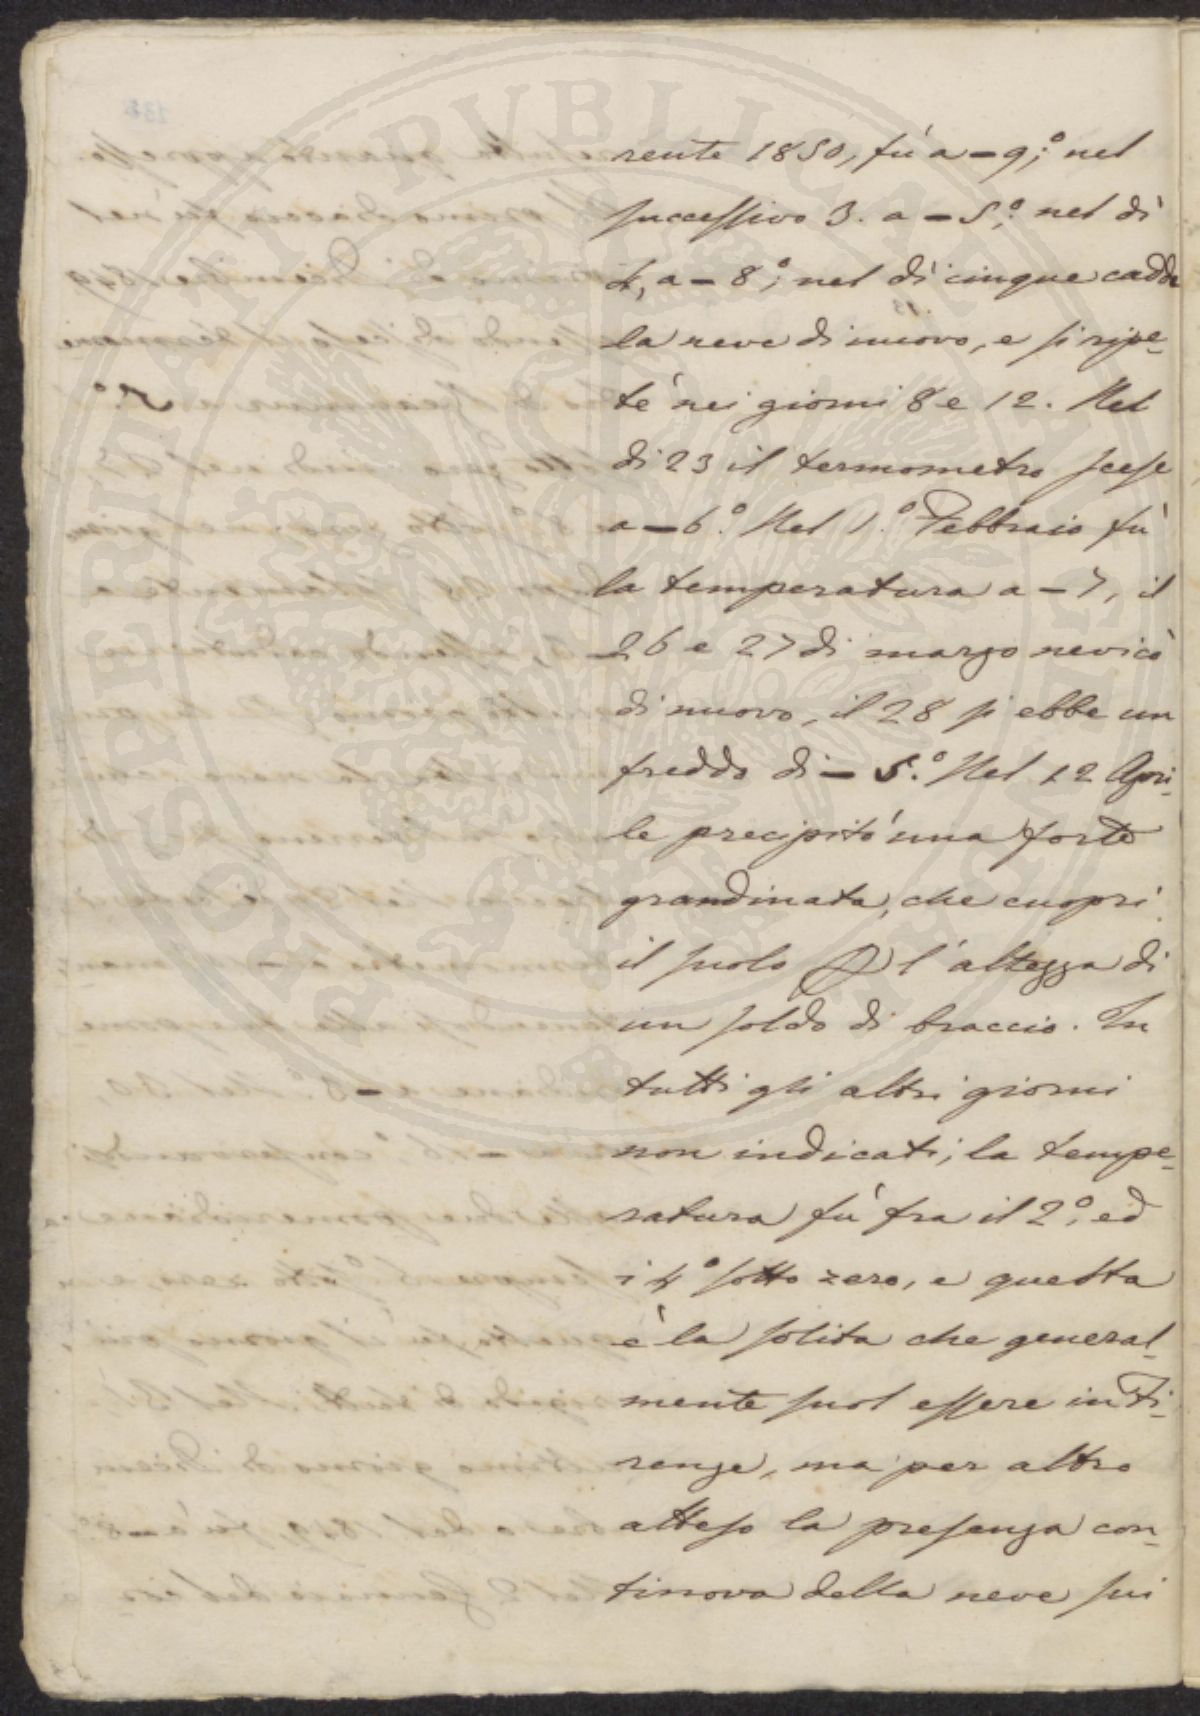 rente 1850, fù a – 9°; nel
successivo 3. a – 5°; nel dì
4, a – 8°; nel dì cinque cadde
la neve di nuovo, e si ripe-
tè nei giorni 8 e 12. Nel
dì 23 il termometro scese
a – 6.° Nel 1.° Febbraio fù
la temperatura a – 7, il
26 e 27 di marzo nevicò
di nuovo, il 28 si ebbe un
freddo di – 5.° Nel 12 Apri-
le precipitò una forte
grandinata, che cuoprì
il suolo l'altezza di
un soldo di braccio. In
tutti gli altri giorni
non indicati, la tempe-
ratura fù fra il 2°, ed
i 4° sotto zero, e questa
è la solita che general-
mente suol essere in Fi-
renze, ma per altro
atteso la presenza con-
tinova della neve sui
PROSPERITATI PVBLICAE AVGENDAE